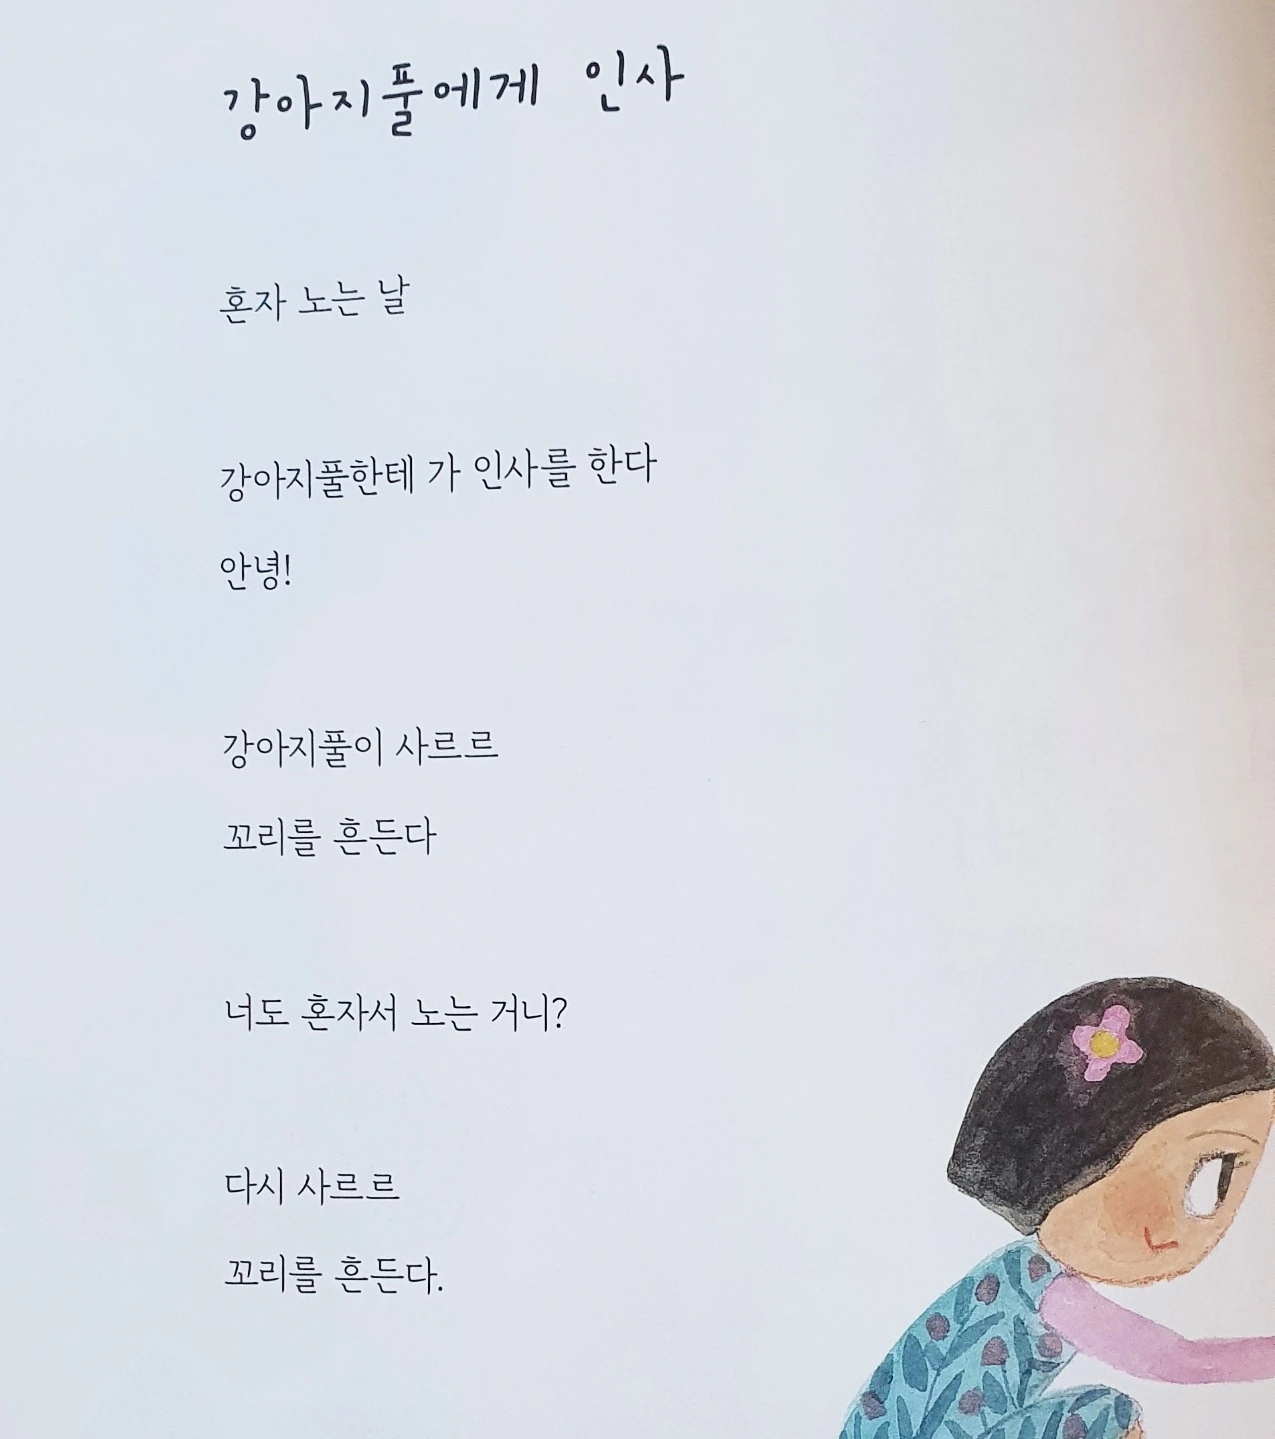 강아지풀에게 인사
혼자 노는 날
강아지풀한테 가 인사를 한다
안녕!
강아지풀이 사르르
꼬리를 흔든다
너도 혼자서 노는 거니?
다시 사르르
꼬리를 흔든다.